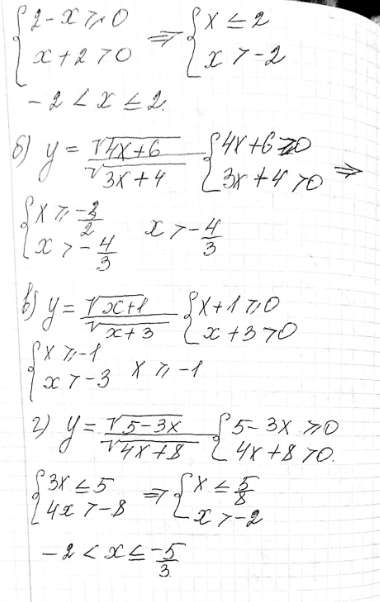 {2-x≥0 ⇒ {x ≤ 2
{x+2>0 {x > -2
-2 < x ≤ 2.
б) y = √4x+6 / √3x+4 {4x+6≥0
{3x+4>0 ⇒
{x ≥ -3/2
{x > -4/3 x > -4/3
в) y = √x+1 / √x+3 {x+1≥0
{x+3>0
{x ≥ -1
{x > -3 x ≥ -1
г) y = √5-3x / √4x+8 {5-3x ≥0
{4x+8>0.
{3x ≤ 5 ⇒ {x ≤ 5/8
{4x > -8 {x > -2
-2 < x ≤ -5/3